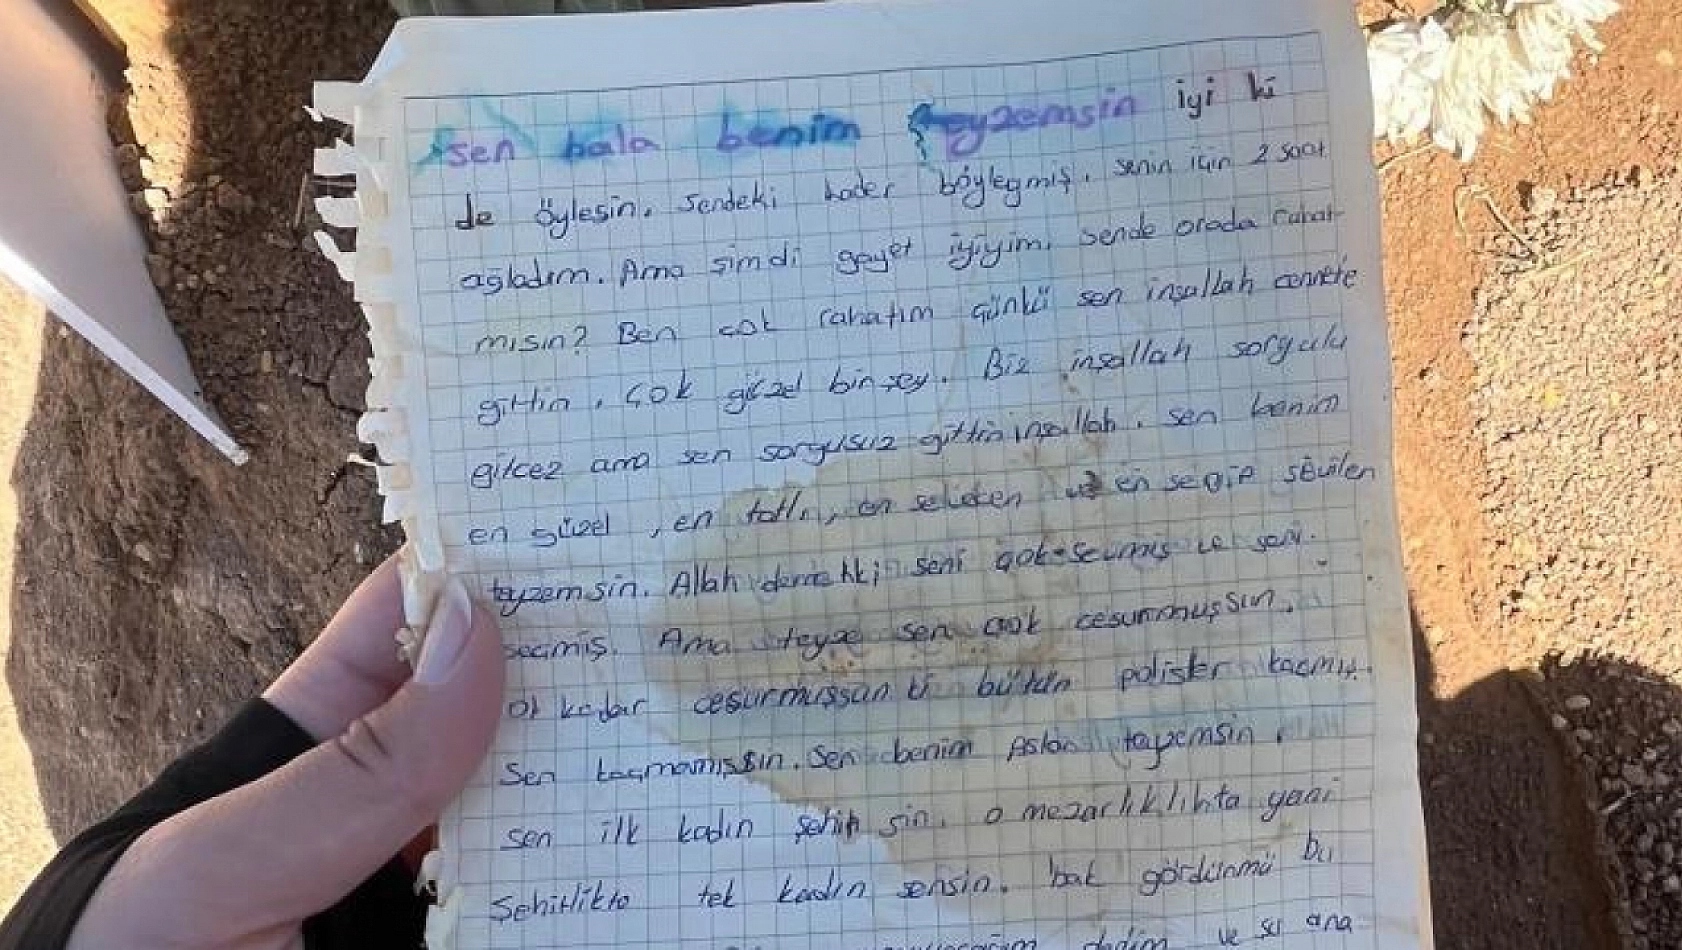 sen hala benim teyzemsin iyi ki
de öylesin. Sendeki kader böyleymiş. senin için 2 saat
ağladım. Ama şimdi gayet iyiyim. sende orada rahat
mısın? Ben çok rahatım çünkü sen inşallah cennete
gittin. Çok güzel birşey. Biz inşallah sorgulu
gitcez ama sen sorgusuz gittin inşallah. sen benim
en güzel, en tatlı, en en sevilen
teyzemsin. Allah demekki seni çok sevmiş seni
seçmiş. Ama teyze sen çok cesurmuşsun.
o kadar cesurmuşsan ki bütün polisler kaçmış.
Sen kaçmamışsın. Sen benim Aslan teyzemsin.
sen ilk kadın şehit sin. o mezarlıklıhta yani
Şehitlikte tek kadın sensin. bak gördünmü bu
dedim ve şu ana